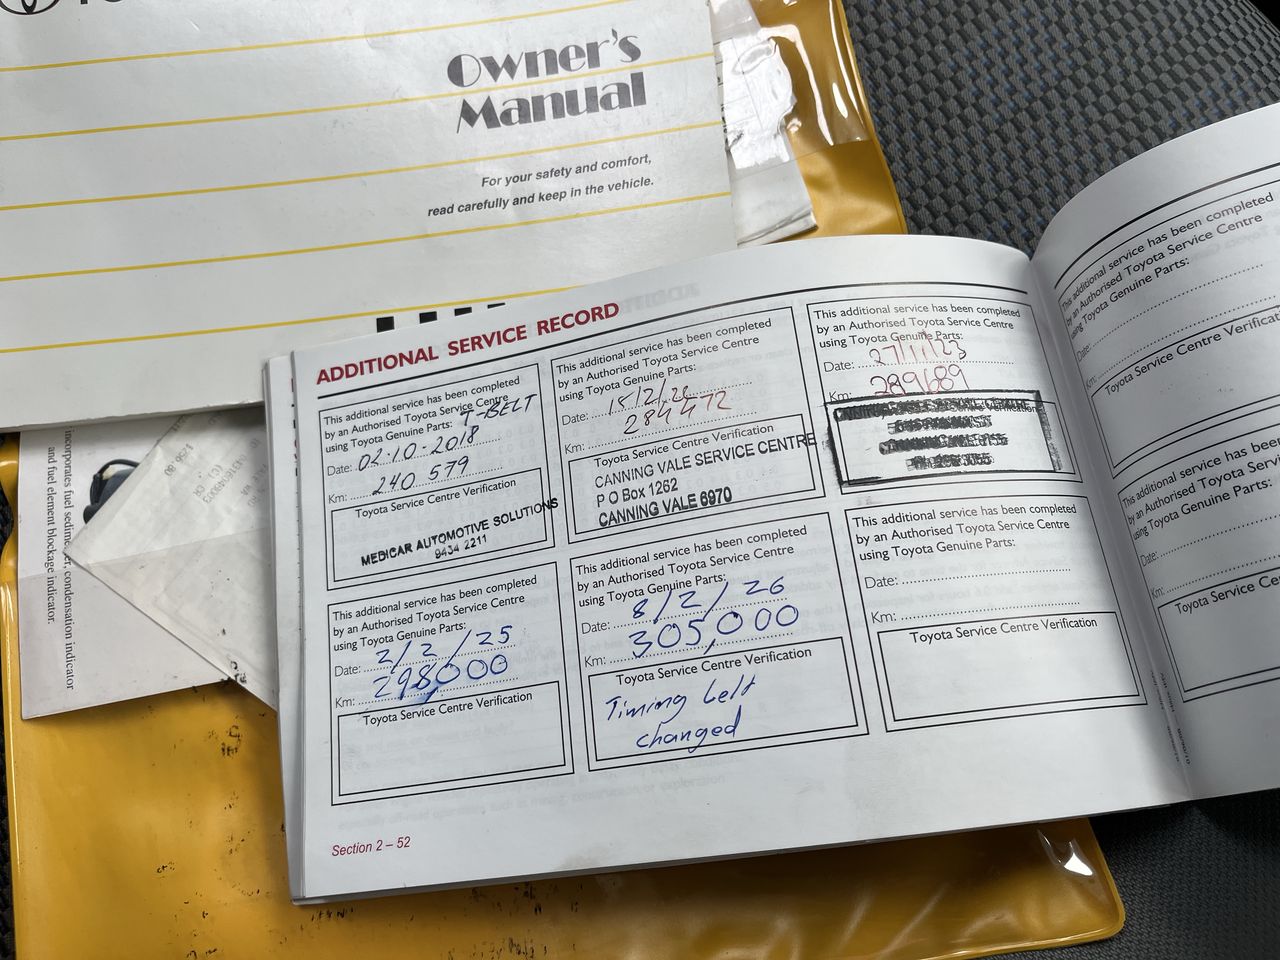 Owner's
Manual
For your safety and comfort,
read carefully and keep in the vehicle.
incorporates fuel sedimenter, condensation indicator
and fuel element blockage indicator.
ADDITIONAL SERVICE RECORD
This additional service has been completed
by an Authorised Toyota Service Centre
using Toyota Genuine Parts: T-BELT
Date: 02-10-2018
Km: 240 579
Toyota Service Centre Verification
MEDICAR AUTOMOTIVE SOLUTIONS
9434 2211
This additional service has been completed
by an Authorised Toyota Service Centre
using Toyota Genuine Parts:
Date: 15/2/22
Km: 284472
Toyota Service Centre Verification
CANNING VALE SERVICE CENTRE
P O Box 1262
CANNING VALE 6970
This additional service has been completed
by an Authorised Toyota Service Centre
using Toyota Genuine Parts:
Date: 27/11/23
Km: 289689
This additional service has been completed
by an Authorised Toyota Service Centre
using Toyota Genuine Parts:
Date: 2/2/25
Km: 298,000
Toyota Service Centre Verification
This additional service has been completed
by an Authorised Toyota Service Centre
using Toyota Genuine Parts:
Date: 8/2/26
Km: 305,000
Toyota Service Centre Verification
Timing belt
changed
This additional service has been completed
by an Authorised Toyota Service Centre
using Toyota Genuine Parts:
Date:
Km:
Toyota Service Centre Verification
Section 2 – 52
This additional service has been completed
by an Authorised Toyota Service Centre
using Toyota Genuine Parts:
Date:
Km:
Toyota Service Centre
This additional service has been
by an Authorised Toyota
using Toyota Genuine
Date:
Km:
Toyota Service Cen